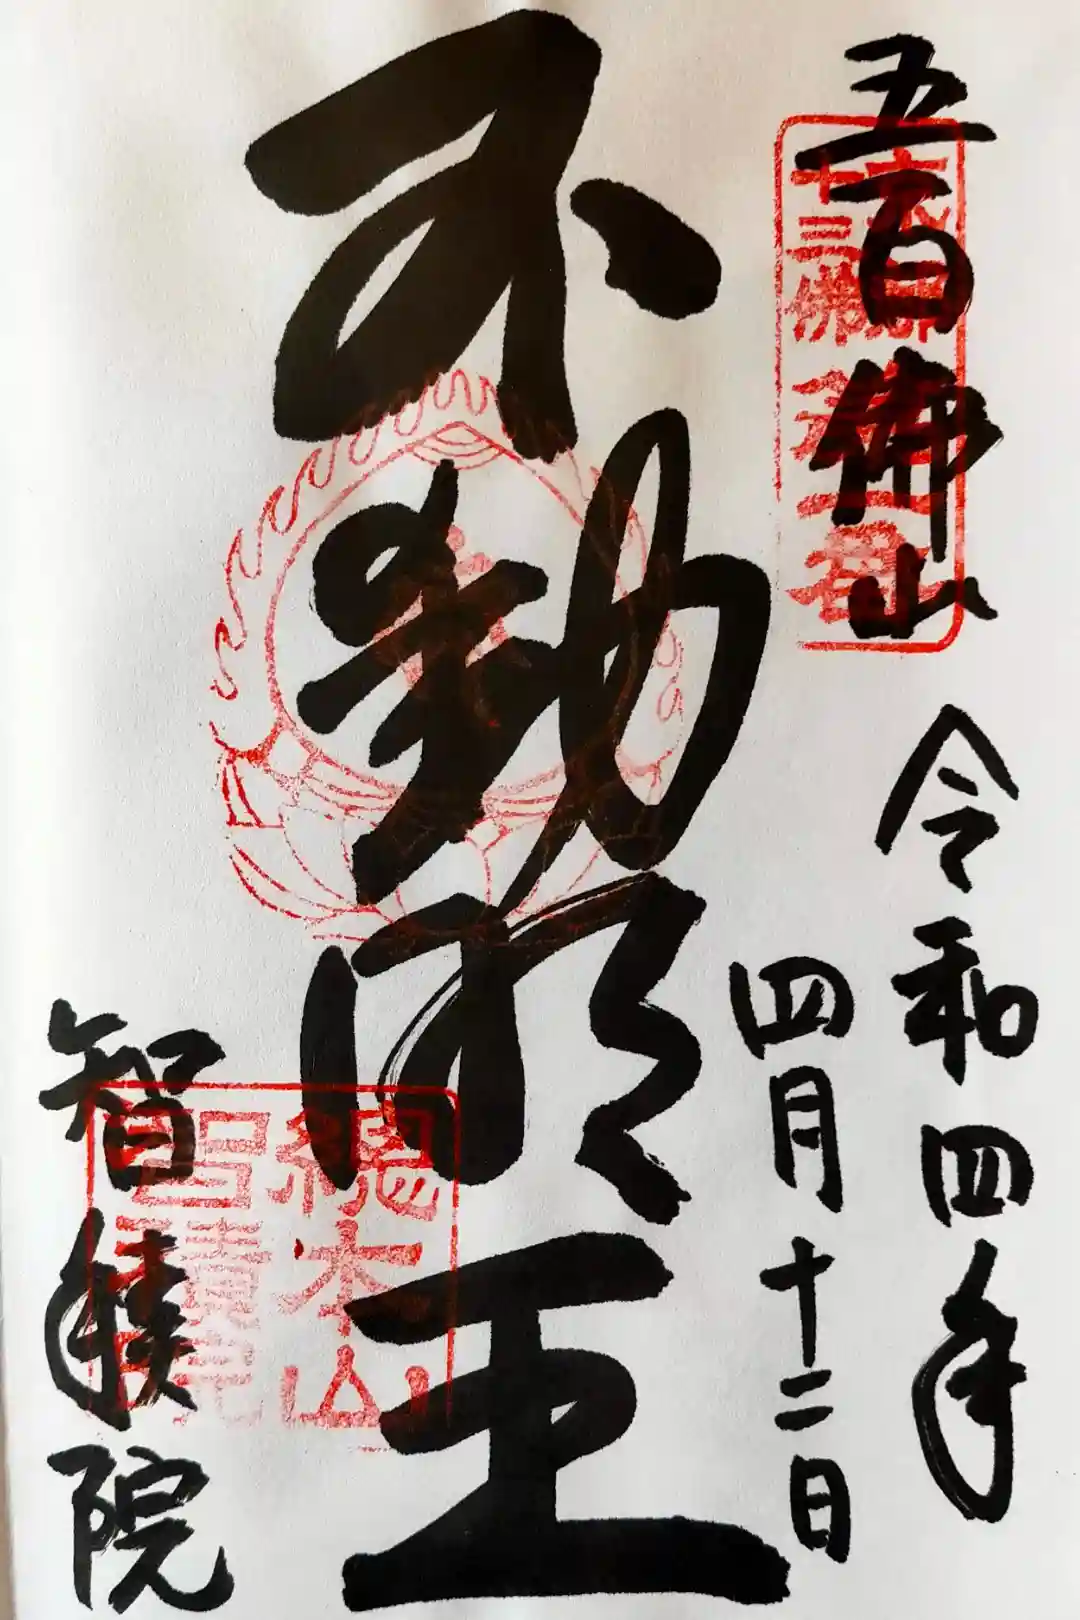 五百佛山
令和四年
四月十二日
不動明王
智積院
十三佛
總本山
智積院